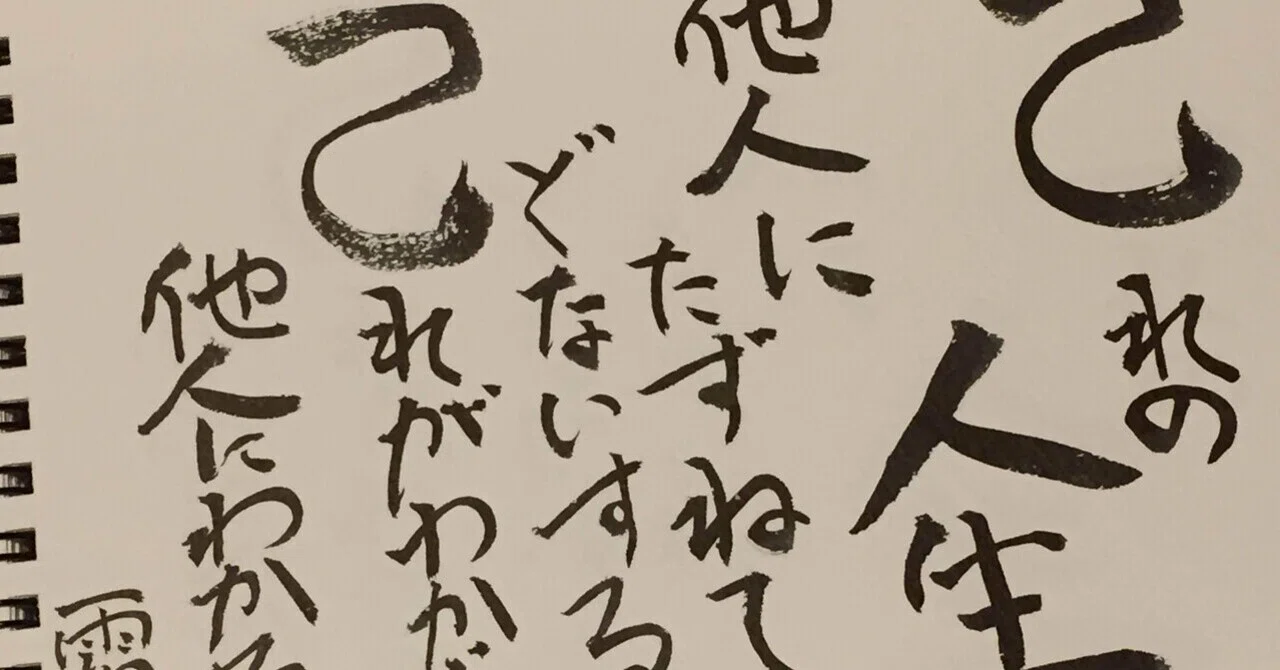 己れの
人生
他人にたずねて
どないする
己れがわか
他人にわか